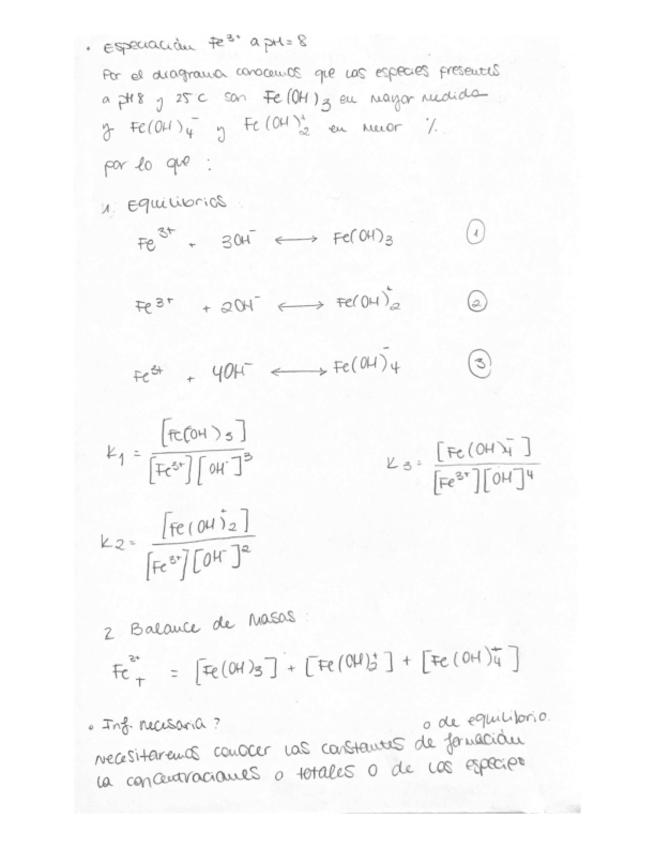 • Especiación Fe³⁺ a pH = 8
Por el diagrama conocemos que las especies presentes
a pH 8 y 25 C son Fe(OH)₃ en mayor medida
y Fe(OH)₄⁻ y Fe(OH)₂⁺ en menor %.
por lo que :
1. Equilibrios
Fe³⁺ + 3OH⁻ ⟷ Fe(OH)₃ ①
Fe³⁺ + 2OH⁻ ⟷ Fe(OH)₂⁺ ②
Fe³⁺ + 4OH⁻ ⟷ Fe(OH)₄⁻ ③
K₁ = [Fe(OH)₃] / [Fe³⁺][OH⁻]³
K₃ = [Fe(OH)₄⁻] / [Fe³⁺][OH]⁴
K₂ = [Fe(OH)₂⁺] / [Fe³⁺][OH⁻]²
2 Balance de masas :
Fe³⁺T = [Fe(OH)₃] + [Fe(OH)₂⁺] + [Fe(OH)₄]
• Inf. necesaria ?
o de equilibrio.
necesitaremos conocer las constantes de formación
la concentraciones o totales o de las especies